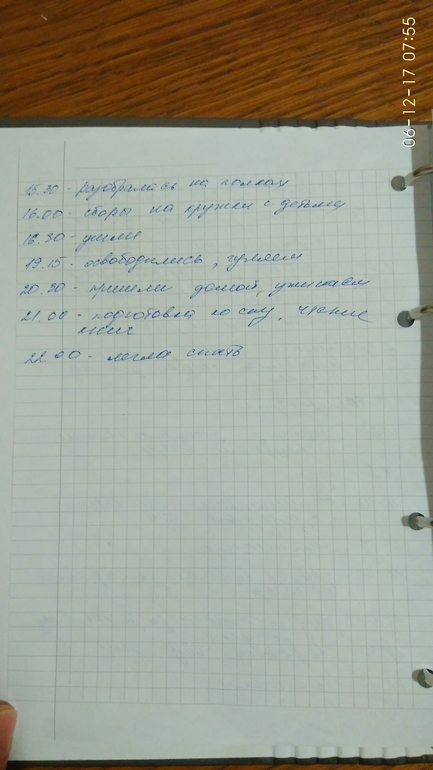 06-12-17 07:55
15.30 - разобралась на полках
16.00 - сборы на кружки с детьми
16.30 - ушли
19.15 - освободились, гуляем
20.30 - пришли домой, ужинаем
21.00 - подготовка ко сну, чтение
книг
22.00 - легла спать